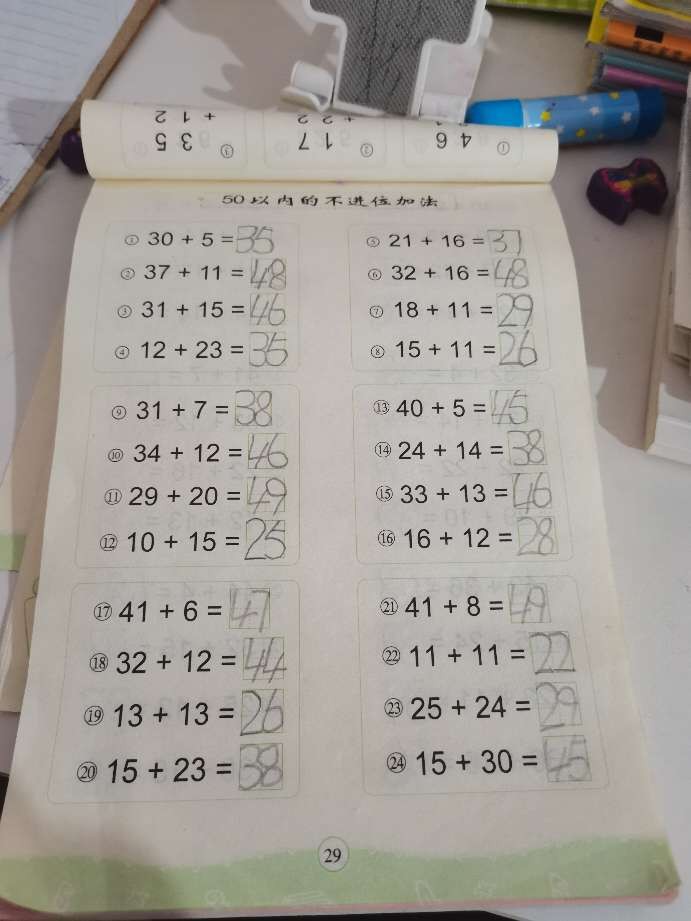 ① 4 6
② 1 7
+ 2 2
③ 3 5
+ 1 2
50以内的不进位加法
① 30 + 5 = 35
② 37 + 11 = 48
③ 31 + 15 = 46
④ 12 + 23 = 35
⑤ 21 + 16 = 37
⑥ 32 + 16 = 48
⑦ 18 + 11 = 29
⑧ 15 + 11 = 26
⑨ 31 + 7 = 38
⑩ 34 + 12 = 46
⑪ 29 + 20 = 49
⑫ 10 + 15 = 25
⑬ 40 + 5 = 45
⑭ 24 + 14 = 38
⑮ 33 + 13 = 46
⑯ 16 + 12 = 28
⑰ 41 + 6 = 47
⑱ 32 + 12 = 44
⑲ 13 + 13 = 26
⑳ 15 + 23 = 38
㉑ 41 + 8 = 49
㉒ 11 + 11 = 22
㉓ 25 + 24 = 29
㉔ 15 + 30 = 45
29